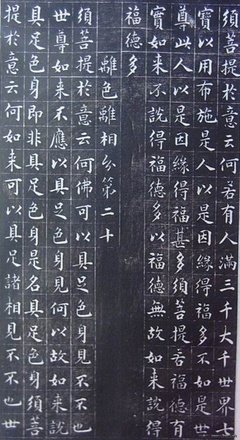 須菩提於意云何若有人滿三千大千世界七
寶以用布施是人以是因緣得福多不如是世
尊此人以是因緣得福甚多須菩提若福德有
實如來不說得福德多以福德無故如來說得
福德多
離色離相分第二十
須菩提於意云何佛可以具足色身見不不也
世尊如來不應以具足色身見何以故如來說
具足色身即非具足色身是名具足色身須菩
提於意云何如來可以具足諸相見不不也世